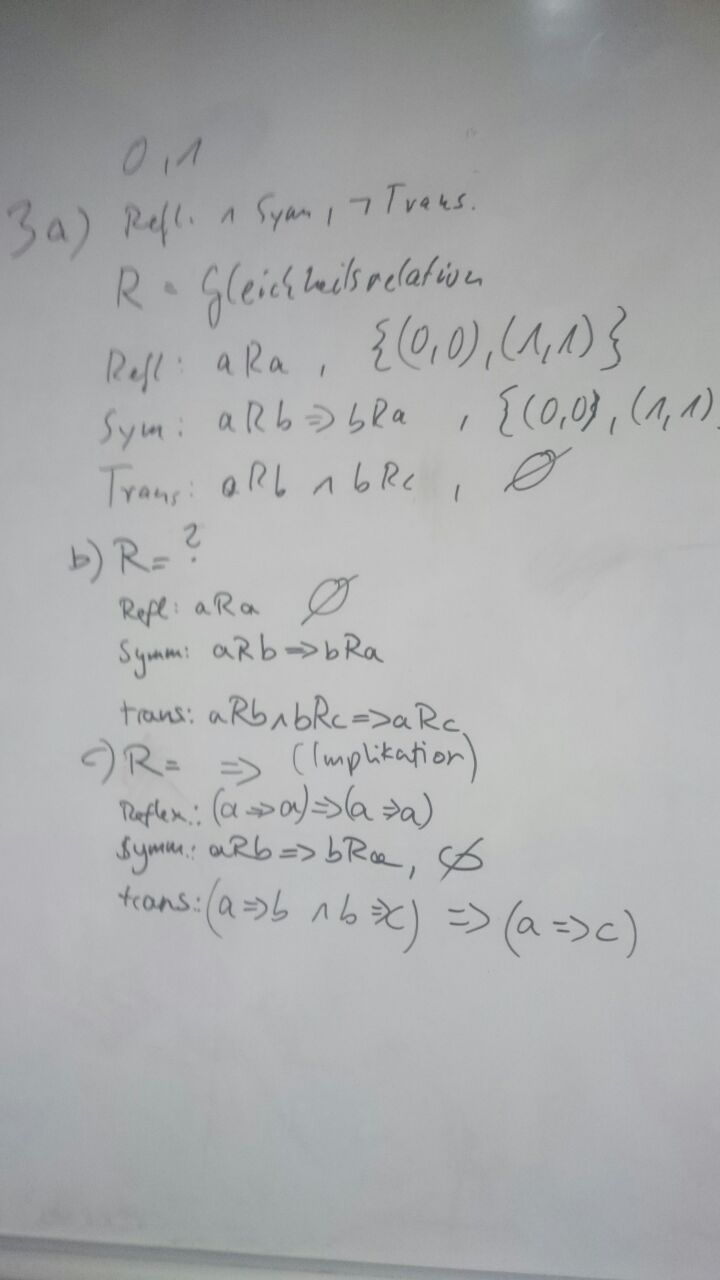 0,1
3a) Refl. ∧ Sym, ¬Trans.
R = Gleichheitsrelation
Refl: aRa, {(0,0),(1,1)}
Sym: aRb ⇒ bRa, {(0,0),(1,1)
Trans: aRb ∧ bRc, ∅
b) R= ?
Refl: aRa ∅
Symm: aRb ⇒ bRa
trans: aRb ∧ bRc ⇒ aRc
c) R= ⇒ (Implikation)
Reflex.: (a ⇒ a) ⇒ (a ⇒ a)
Symm.: aRb ⇒ bRa, ∅
trans: (a ⇒ b ∧ b ⇒ c) ⇒ (a ⇒ c)